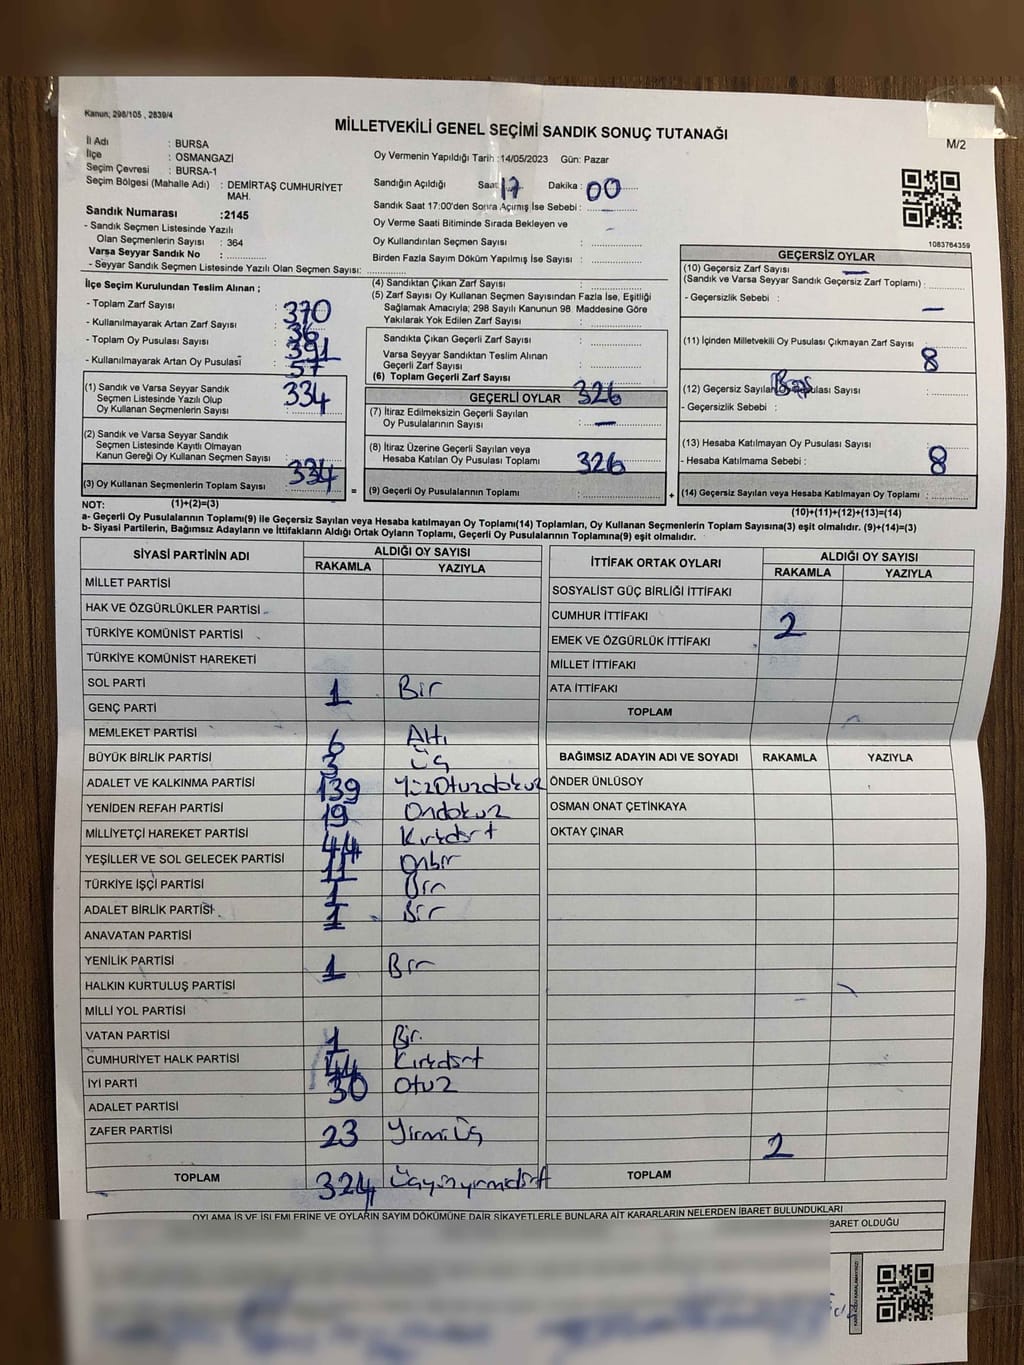 Kanun; 298/105 , 2839/4
MİLLETVEKİLİ GENEL SEÇİMİ SANDIK SONUÇ TUTANAĞI
M/2
İl Adı : BURSA
İlçe : OSMANGAZİ
Seçim Çevresi : BURSA-1
Seçim Bölgesi (Mahalle Adı) : DEMİRTAŞ CUMHURİYET
MAH.
Sandık Numarası :2145
- Sandık Seçmen Listesinde Yazılı
Olan Seçmenlerin Sayısı : 364
Varsa Seyyar Sandık No :
- Seyyar Sandık Seçmen Listesinde Yazılı Olan Seçmen Sayısı:
Oy Vermenin Yapıldığı Tarih :14/05/2023 Gün: Pazar
Sandığın Açıldığı Saat 17 Dakika : 00
Sandık Saat 17:00'den Sonra Açılmış İse Sebebi :
Oy Verme Saati Bitiminde Sırada Bekleyen ve
Oy Kullandırılan Seçmen Sayısı :
Birden Fazla Sayım Döküm Yapılmış İse Sayısı :
1083764359
İlçe Seçim Kurulundan Teslim Alınan ;
- Toplam Zarf Sayısı : 370
- Kullanılmayarak Artan Zarf Sayısı : 36
- Toplam Oy Pusulası Sayısı : 391
- Kullanılmayarak Artan Oy Pusulası : 57
(1) Sandık ve Varsa Seyyar Sandık
Seçmen Listesinde Yazılı Olup
Oy Kullanan Seçmenlerin Sayısı : 334
(2) Sandık ve Varsa Seyyar Sandık
Seçmen Listesinde Kayıtlı Olmayan
Kanun Gereği Oy Kullanan Seçmen Sayısı :
(3) Oy Kullanan Seçmenlerin Toplam Sayısı : 334
(1)+(2)=(3)
(4) Sandıktan Çıkan Zarf Sayısı :
(5) Zarf Sayısı Oy Kullanan Seçmen Sayısından Fazla İse, Eşitliği
Sağlamak Amacıyla; 298 Sayılı Kanunun 98 Maddesine Göre
Yakılarak Yok Edilen Zarf Sayısı :
Sandıkta Çıkan Geçerli Zarf Sayısı :
Varsa Seyyar Sandıktan Teslim Alınan
Geçerli Zarf Sayısı :
(6) Toplam Geçerli Zarf Sayısı : 326
GEÇERLİ OYLAR
(7) İtiraz Edilmeksizin Geçerli Sayılan
Oy Pusulalarının Sayısı : —
(8) İtiraz Üzerine Geçerli Sayılan veya
Hesaba Katılan Oy Pusulası Toplamı : 326
= (9) Geçerli Oy Pusulalarının Toplamı :
GEÇERSİZ OYLAR
(10) Geçersiz Zarf Sayısı —
(Sandık ve Varsa Seyyar Sandık Geçersiz Zarf Toplamı) :
- Geçersizlik Sebebi : —
(11) İçinden Milletvekili Oy Pusulası Çıkmayan Zarf Sayısı : 8
(12) Geçersiz Sayılan Oy Pusulası Sayısı :
- Geçersizlik Sebebi :
(13) Hesaba Katılmayan Oy Pusulası Sayısı :
- Hesaba Katılmama Sebebi : 8
+ (14) Geçersiz Sayılan veya Hesaba Katılmayan Oy Toplamı :
(10)+(11)+(12)+(13)=(14)
NOT:
a- Geçerli Oy Pusulalarının Toplamı(9) ile Geçersiz Sayılan veya Hesaba katılmayan Oy Toplamı(14) Toplamları, Oy Kullanan Seçmenlerin Toplam Sayısına(3) eşit olmalıdır. (9)+(14)=(3)
b- Siyasi Partilerin, Bağımsız Adayların ve İttifakların Aldığı Ortak Oyların Toplamı, Geçerli Oy Pusulalarının Toplamına(9) eşit olmalıdır.
SİYASİ PARTİNİN ADI ALDIĞI OY SAYISI
RAKAMLA YAZIYLA
MİLLET PARTİSİ
HAK VE ÖZGÜRLÜKLER PARTİSİ
TÜRKİYE KOMÜNİST PARTİSİ
TÜRKİYE KOMÜNİST HAREKETİ
SOL PARTİ 1 Bir
GENÇ PARTİ
MEMLEKET PARTİSİ 6 Altı
BÜYÜK BİRLİK PARTİSİ 3 üç
ADALET VE KALKINMA PARTİSİ 139 YüzOtuzdokuz
YENİDEN REFAH PARTİSİ 19 Ondokuz
MİLLİYETÇİ HAREKET PARTİSİ 44 Kırkdört
YEŞİLLER VE SOL GELECEK PARTİSİ 11 Onbir
TÜRKİYE İŞÇİ PARTİSİ 1 Bir
ADALET BİRLİK PARTİSİ 1 Bir
ANAVATAN PARTİSİ
YENİLİK PARTİSİ 1 Bir
HALKIN KURTULUŞ PARTİSİ
MİLLİ YOL PARTİSİ
VATAN PARTİSİ 1 Bir.
CUMHURİYET HALK PARTİSİ 44 Kırkdört
İYİ PARTİ 30 Otuz
ADALET PARTİSİ
ZAFER PARTİSİ 23 Yirmiüç
TOPLAM 324 üçyüzyirmidört
İTTİFAK ORTAK OYLARI ALDIĞI OY SAYISI
RAKAMLA YAZIYLA
SOSYALİST GÜÇ BİRLİĞİ İTTİFAKI
CUMHUR İTTİFAKI 2
EMEK VE ÖZGÜRLÜK İTTİFAKI
MİLLET İTTİFAKI
ATA İTTİFAKI
TOPLAM
BAĞIMSIZ ADAYIN ADI VE SOYADI RAKAMLA YAZIYLA
ÖNDER ÜNLÜSOY
OSMAN ONAT ÇETİNKAYA
OKTAY ÇINAR
2
TOPLAM
OYLAMA İŞ VE İŞLEMLERİNE VE OYLARIN SAYIM DÖKÜMÜNE DAİR ŞİKAYETLERLE BUNLARA AİT KARARLARIN NELERDEN İBARET BULUNDUKLARI
BARET OLDUĞU